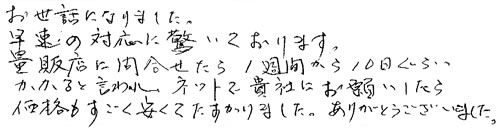 お世話になりました。
早速の対応に驚いております。
量販店に問合せたら1週間から10日くらい
かかると言われ、ネットで貴社にお願いしたら
価格もすごく安くてたすかりました。ありがとうございました。